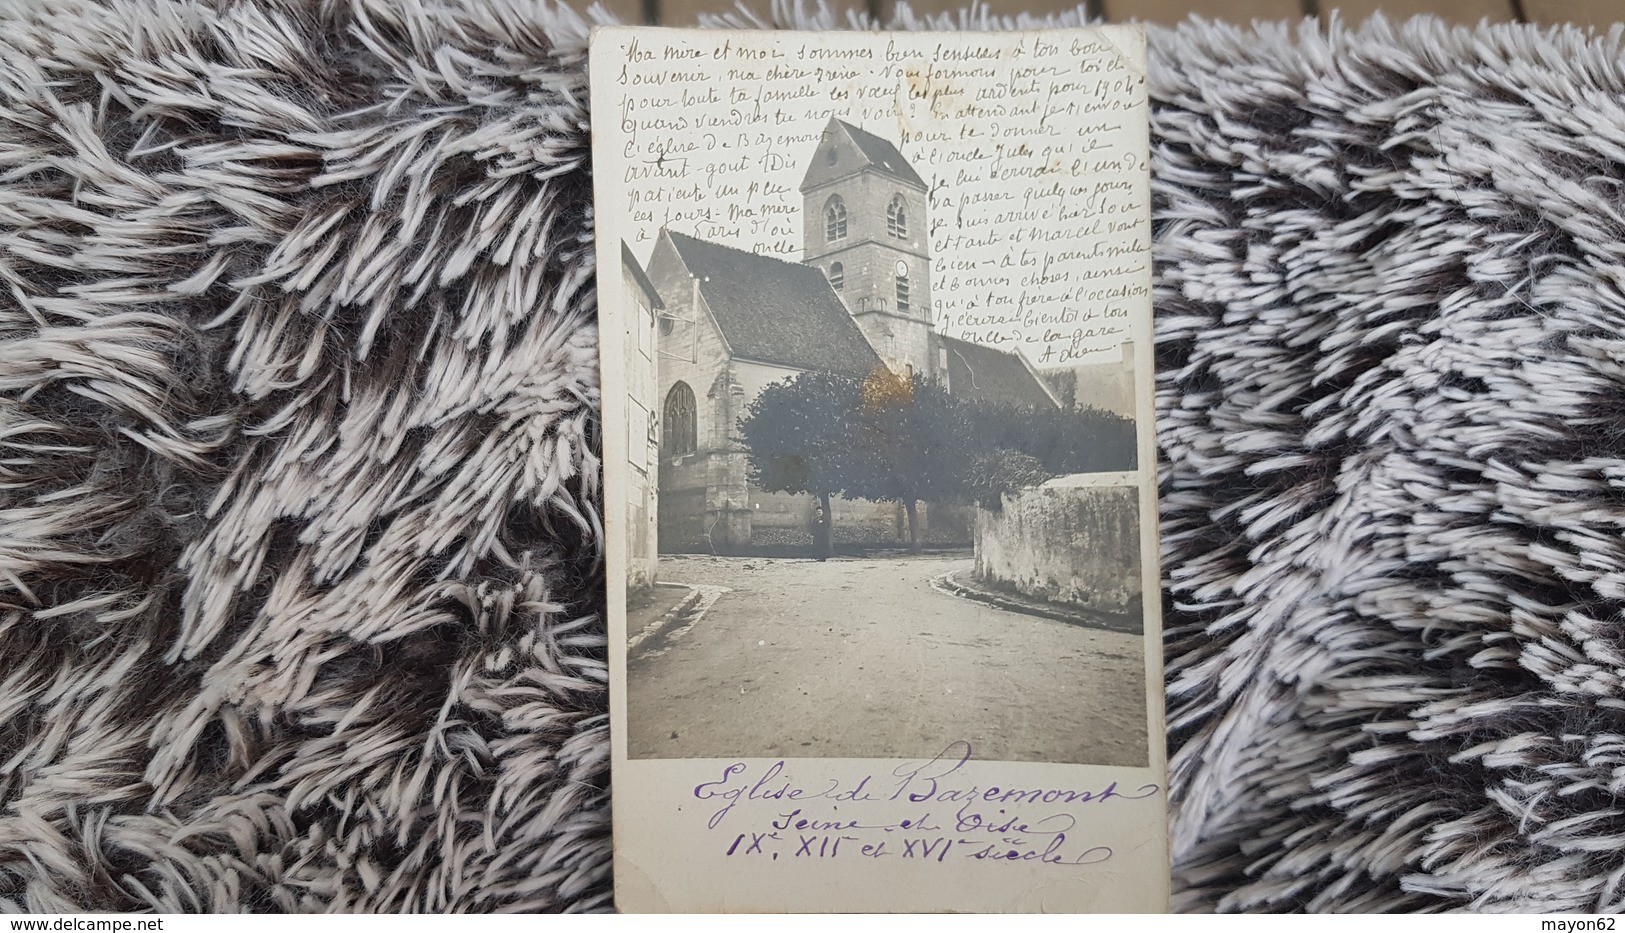 Ma mère et moi sommes bien sensibles à ton bon
souvenir, ma chère Irène. Nous formons pour toi et
pour toute ta famille les vœux les plus ardents pour 1904
Quand viendras tu nous voir? En attendant je t'envoie
l'église de Bazemont pour te donner un
avant-gout. Dis à l'oncle Jules qu'il
patiente un peu je lui écrirai l'un de
ces jours. Ma mère va passer quelques jours
à Paris d'où je suis arrivé hier soir
oncle et tante et Marcel vont
bien - A tes parents mille
et bonnes choses, ainsi
qu'à ton frère à l'occasion
J'écrirai bientôt à ton
oncle de la gare.
Adieu.
Eglise de Bazemont
Seine et Oise
IXe, XIIe et XVIe siècle
www.delcampe.net
mayon62